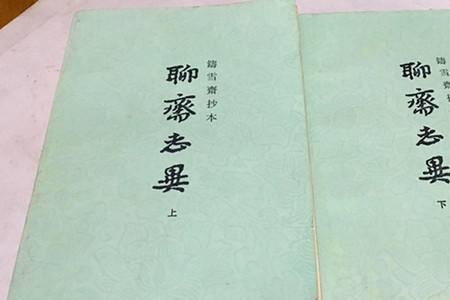 鑄雪齋抄本
聊齋志異
上
鑄雪齋抄
聊齋志異
下